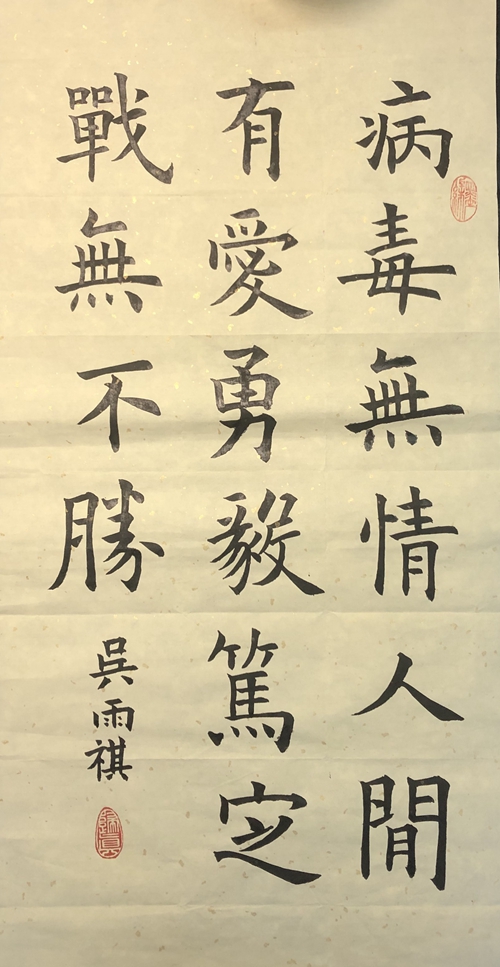 病毒無情人閒
有愛勇毅篤㝎
戰無不勝
吳雨祺